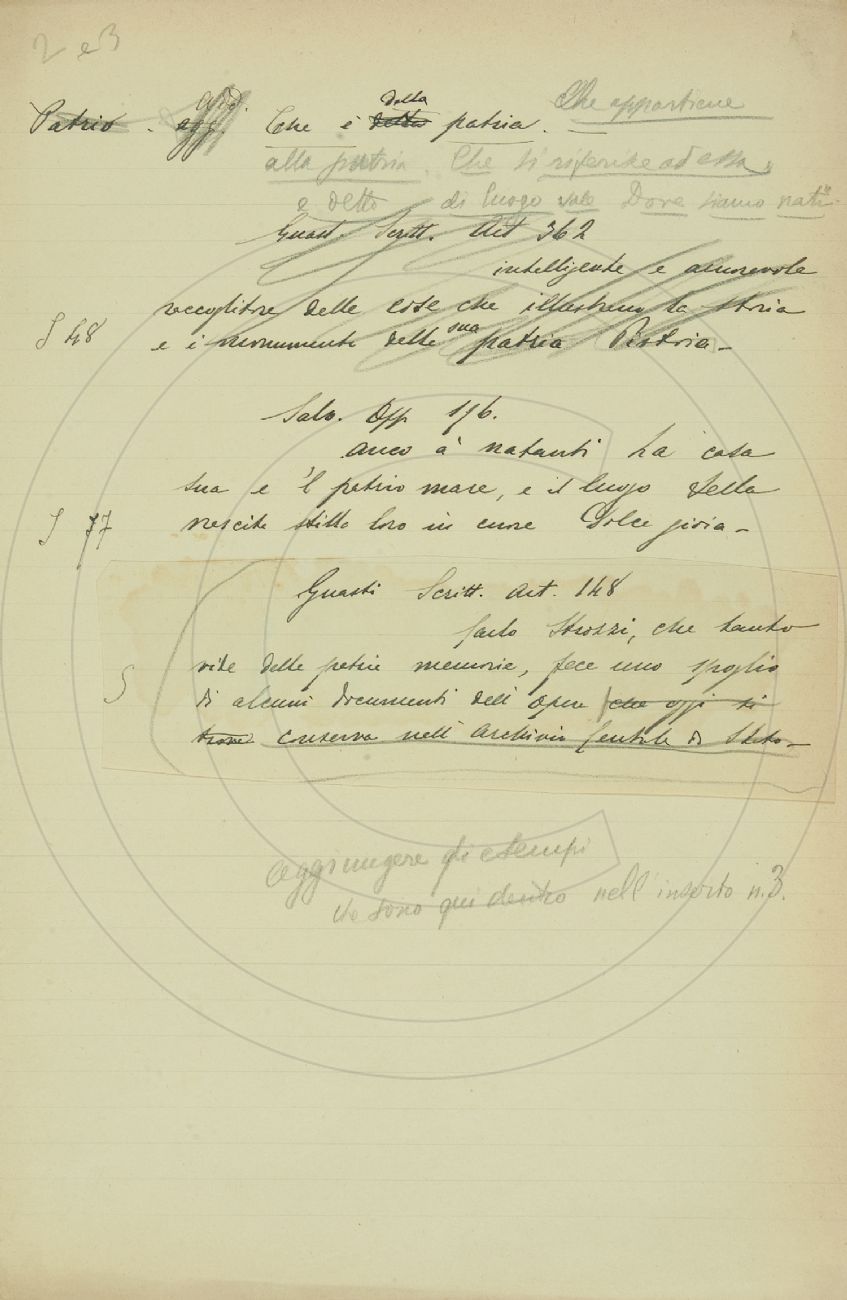 2 e 3
Patrio. add. agg. Che è della detta patria. — Che appartiene
alla patria. Che si riferisce ad essa,
e detto di luogo vale Dove siamo nati.
Guast. Scritt. Art 362
intelligente e amorevole
raccoglitore delle cose che illustrano la storia
S 48 e i monumenti della sua patria Pistoia —
Salv. Opp 176.
anco a' natanti La casa
sua e 'l patrio mare, e il luogo della
S 77 nascita stilla loro in cuore Dolce gioia —
Guasti Scritt. Art. 148
Carlo Strozzi, che tanto
S vide delle patrie memorie, fece uno spoglio
di alcuni documenti dell' Opera che oggi si
trova conserva nell' Archivio Centrale di Stato —
Aggiungere gli esempi
che sono qui dentro nell' inserto n. 3.